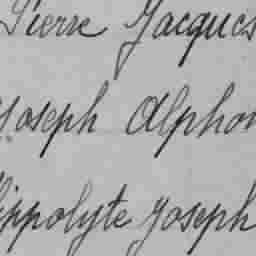 Pierre Jacques
Joseph Alphon
Hippolyte Joseph